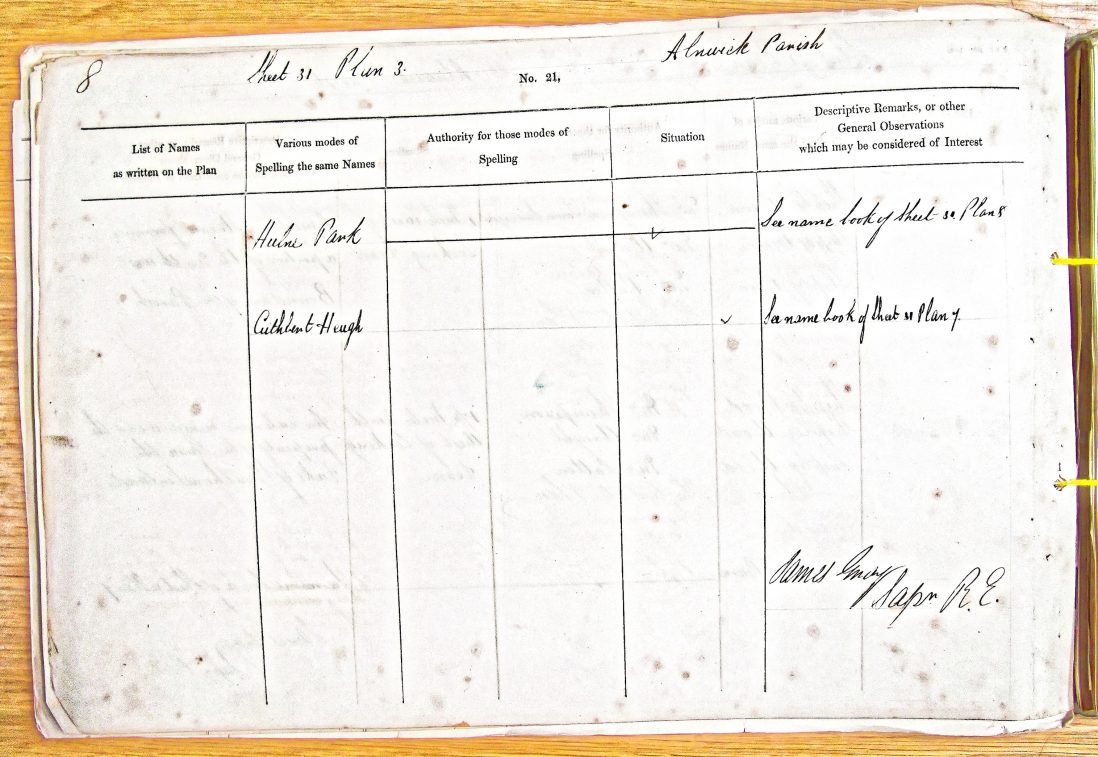 8
Sheet 31 Plan 3.
No. 21,
Alnwick Parish
List of Names
as written on the Plan
Various modes of
Spelling the same Names
Authority for those modes of
Spelling
Situation
Descriptive Remarks, or other
General Observations
which may be considered of Interest
Hulne Park
See name book of Sheet Plan 8
Cuthbert Heugh
See name book of Sheet 31 Plan 7
James
Sapr R.E.